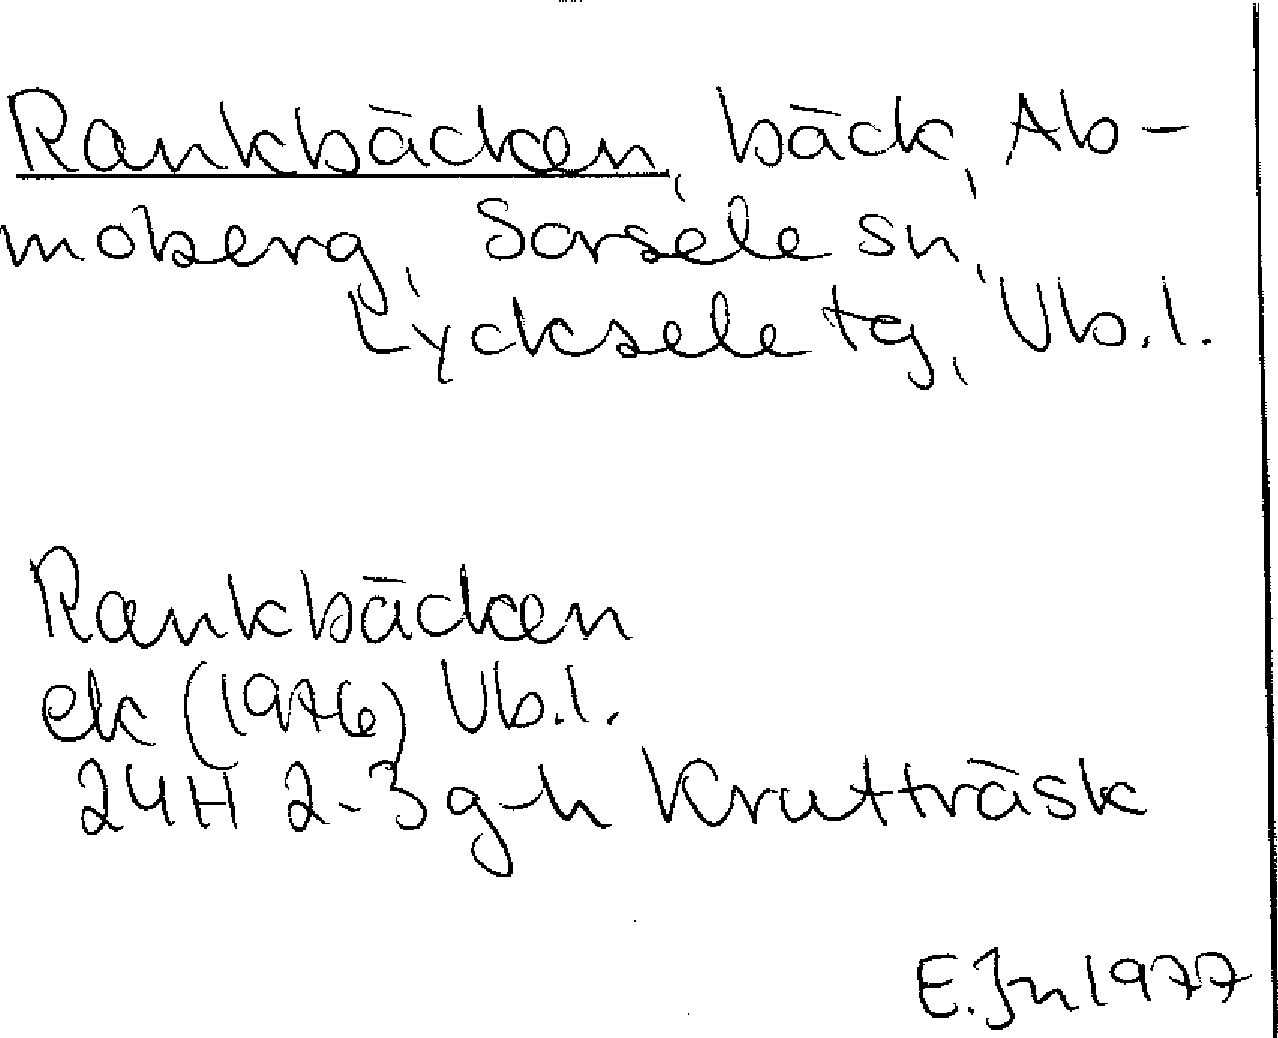 Rankbäcken, bäck, Ab-
moberg, Sorsele sn,
Lycksele tg, Vb.l.
Rankbäcken
ek (1976) Vb.l.
24H 2-3 g-h Krutträsk
E.Jn 1977